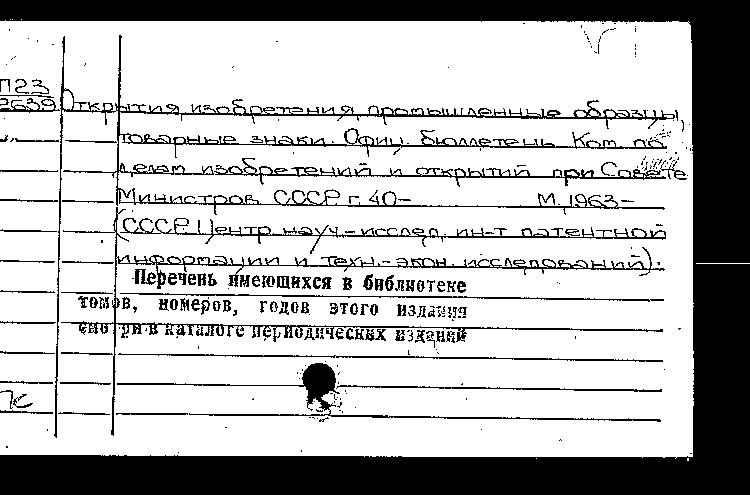 П23
2639
Открытия, изобретения, промышленные образцы,
товарные знаки. Офиц. бюллетень Ком. по
делам изобретений и открытий при Совете
Министров СССР г. 40- М., 1963-
(СССР. Центр. науч.-исслед. ин-т патентной
информации и техн.-экон. исследований).
Перечень имеющихся в библиотеке
томов, номеров, годов этого издания
смотри в каталоге периодических изданий